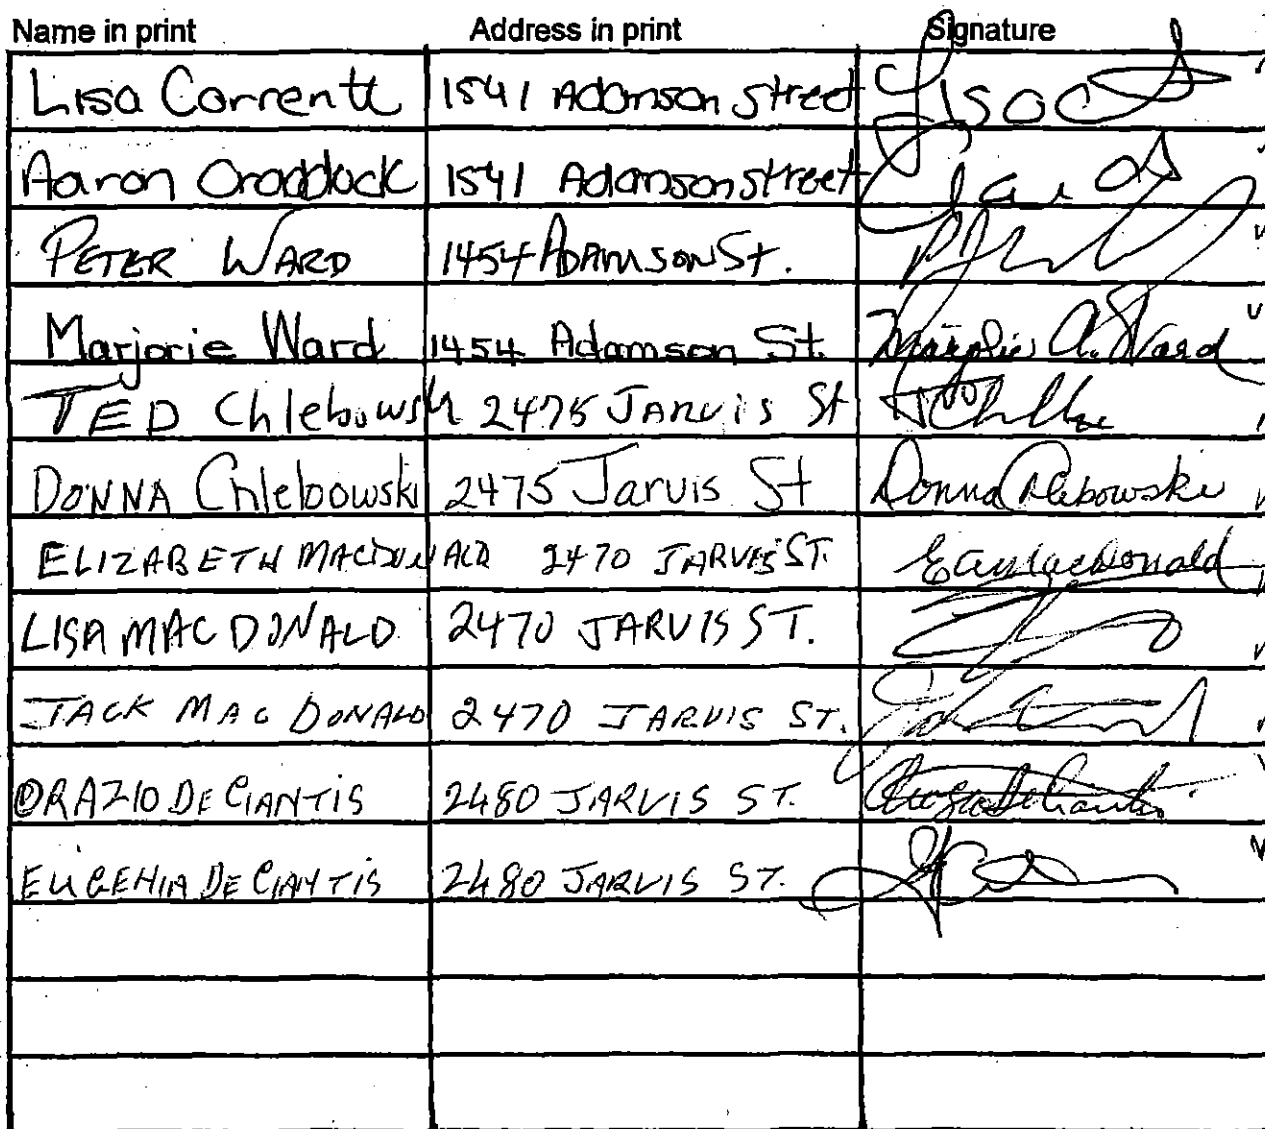 Name in print Address in print Signature
Lisa Correntt 1541 Adamson Street
Aaron Craddock 1541 Adamson street
PETER WARD 1454 ADAMSON St.
Marjorie Ward 1454 Adamson St. Marjorie A. Ward
TED Chlebowski 2475 JARVIS St
DONNA Chlebowski 2475 Jarvis St Donna Chlebowski
ELIZABETH MACDONALD 2470 JARVIS ST. EA MacDonald
LISA MAC DONALD 2470 JARVIS ST.
JACK MAC DONALD 2470 JARVIS ST.
ORAZIO DE CIANTIS 2480 JARVIS ST.
EUGENIA DE CIANTIS 2480 JARVIS ST.